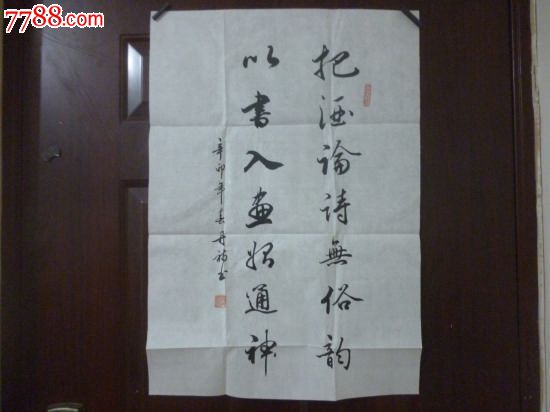 7788.com
把酒論詩無俗韵
以書入畫始通神
辛卯年春丹